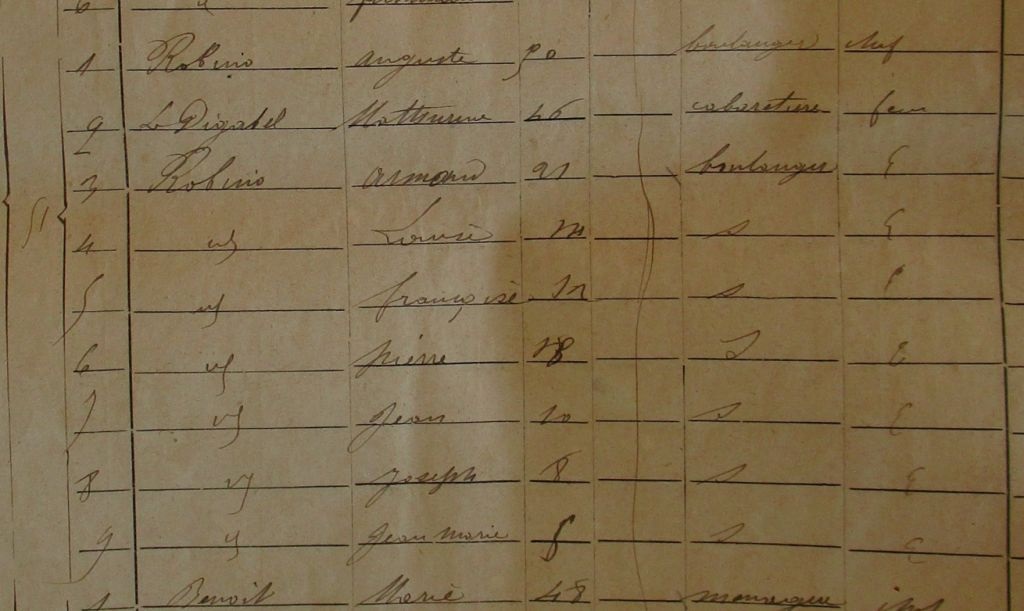 6 id
1 Robino auguste 50 boulanger chef
2 Le Digabel Mathurine 46 cabaretiere fem
3 Robino armand 21 boulanger E
51 4 id Louise s E
5 id françoise s E
6 id pierre 18 s E
7 id Jean 10 s E
8 id Joseph 8 s E
9 id Jean marie s E
1 Benoit Marie 48 menagere chef